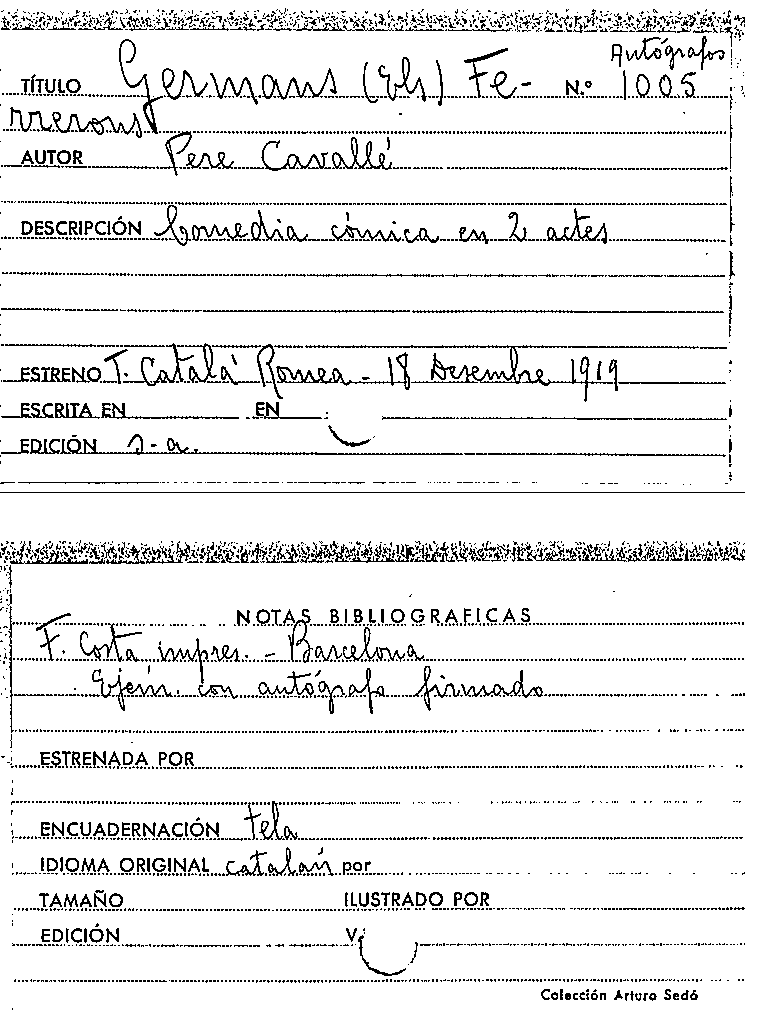 Autógrafos
TÍTULO Germans (Els) Fe- N.º 1005
rrerons
AUTOR Pere Cavallé
DESCRIPCIÓN Comedia cómica en 2 actes
ESTRENO T. Catalá Romea - 18 Desembre 1919
ESCRITA EN EN
EDICIÓN s-a.
NOTAS BIBLIOGRAFICAS
F. Costa impres. - Barcelona
Ejem. con autógrafo firmado
ESTRENADA POR
ENCUADERNACIÓN tela
IDIOMA ORIGINAL catalán por
TAMAÑO ILUSTRADO POR
EDICIÓN V.
Colección Arturo Sedó